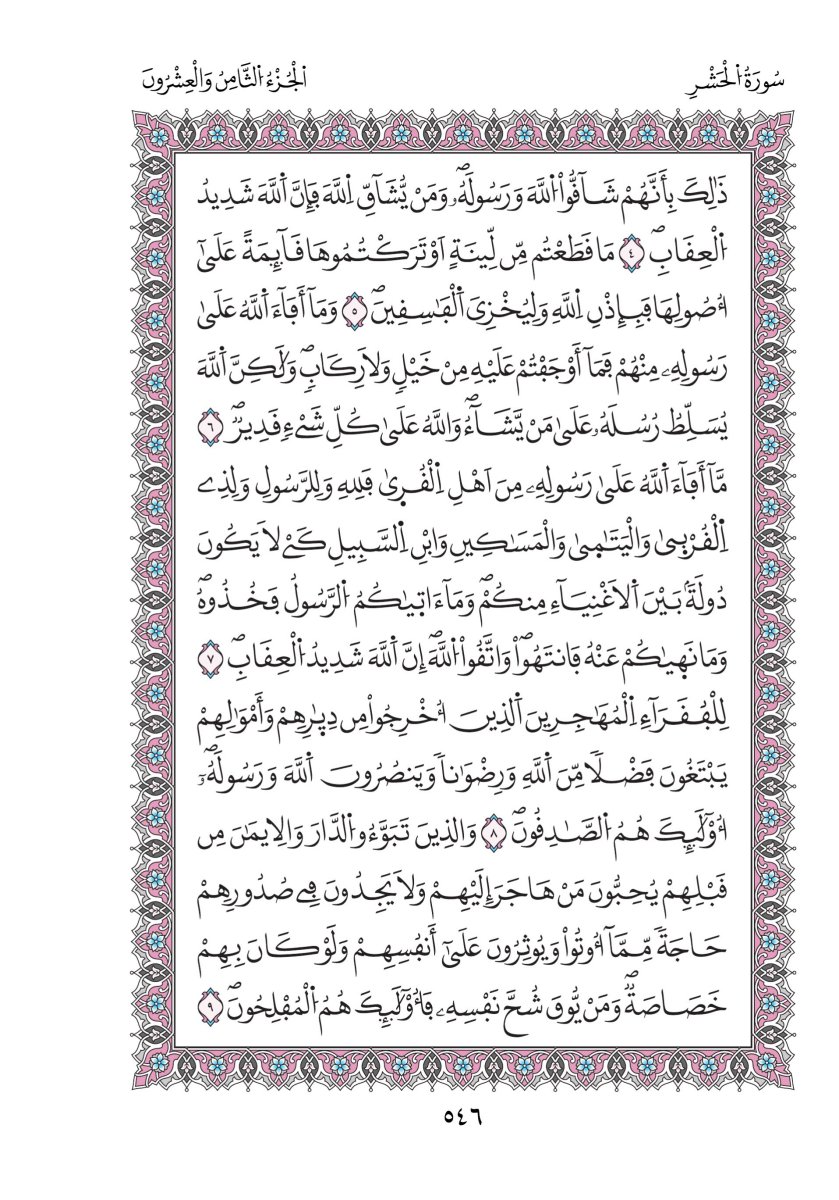 سُورَةُ اُ۬لْحَشْرِ
اَ۬لْجُزْءُ اُ۬لثَّامِنُ وَالْعِشْرُونَ
ذَٰلِكَ بِأَنَّهُمْ شَآقُّواْ اُ۬للَّهَ وَرَسُولَهُۥۖ وَمَنْ يُّشَآقِّ اِ۬للَّهَ فَإِنَّ اَ۬للَّهَ شَدِيدُ
اُ۬لْعِقَابِۖ ٤ مَا قَطَعْتُم مِّن لِّينَةٍ اَوْ تَرَكْتُمُوهَا قَآئِمَةً عَلَىٰٓ
أُصُولِهَا فَبِإِذْنِ اِ۬للَّهِ وَلِيُخْزِيَ اَ۬لْفَٰسِقِينَۖ ٥ وَمَآ أَفَآءَ اَ۬للَّهُ عَلَىٰ
رَسُولِهِۦ مِنْهُمْ فَمَآ أَوْجَفْتُمْ عَلَيْهِ مِنْ خَيْلٖ وَلَا رِكَابٖۖ وَلَٰكِنَّ اَ۬للَّهَ
يُسَلِّطُ رُسُلَهُۥ عَلَىٰ مَنْ يَّشَآءُۖ وَاللَّهُ عَلَىٰ كُلِّ شَےْءٖ قَدِيرٞۖ ٦
مَّآ أَفَآءَ اَ۬للَّهُ عَلَىٰ رَسُولِهِۦ مِنَ اَهْلِ اِ۬لْقُر۪ىٰ فَلِلهِ وَلِلرَّسُولِ وَلِذِے
اِ۬لْقُرْب۪ىٰ وَالْيَتَٰم۪ىٰ وَالْمَسَٰكِينِ وَابْنِ اِ۬لسَّبِيلِ كَےْ لَا يَكُونَ
دُولَةَۢ بَيْنَ اَ۬لَاغْنِيَآءِ مِنكُمْۖ وَمَآ ءَات۪يٰكُمُ اُ۬لرَّسُولُ فَخُذُوهُۖ
وَمَا نَه۪يٰكُمْ عَنْهُ فَانتَهُواْۖ وَاتَّقُواْ اُ۬للَّهَۖ إِنَّ اَ۬للَّهَ شَدِيدُ اُ۬لْعِقَابِۖ ٧
لِلْفُقَرَآءِ اِ۬لْمُهَٰجِرِينَ اَ۬لذِينَ أُخْرِجُواْ مِن دِيٰ۪رِهِمْ وَأَمْوَٰلِهِمْ
يَبْتَغُونَ فَضْلاٗ مِّنَ اَ۬للَّهِ وَرِضْوَٰناٗ وَيَنصُرُونَ اَ۬للَّهَ وَرَسُولَهُۥٓۖ
أُوْلَٰٓئِكَ هُمُ اُ۬لصَّٰدِقُونَۖ ٨ وَالذِينَ تَبَوَّءُو اُ۬لدَّارَ وَالِايمَٰنَ مِن
قَبْلِهِمْ يُحِبُّونَ مَنْ هَاجَرَ إِلَيْهِمْ وَلَا يَجِدُونَ فِے صُدُورِهِمْ
حَاجَةٗ مِّمَّآ أُوتُواْ وَيُوثِرُونَ عَلَىٰٓ أَنفُسِهِمْ وَلَوْ كَانَ بِهِمْ
خَصَاصَةٞۖ وَمَنْ يُّوقَ شُحَّ نَفْسِهِۦ فَأُوْلَٰٓئِكَ هُمُ اُ۬لْمُفْلِحُونَۖ ٩
٥٤٦